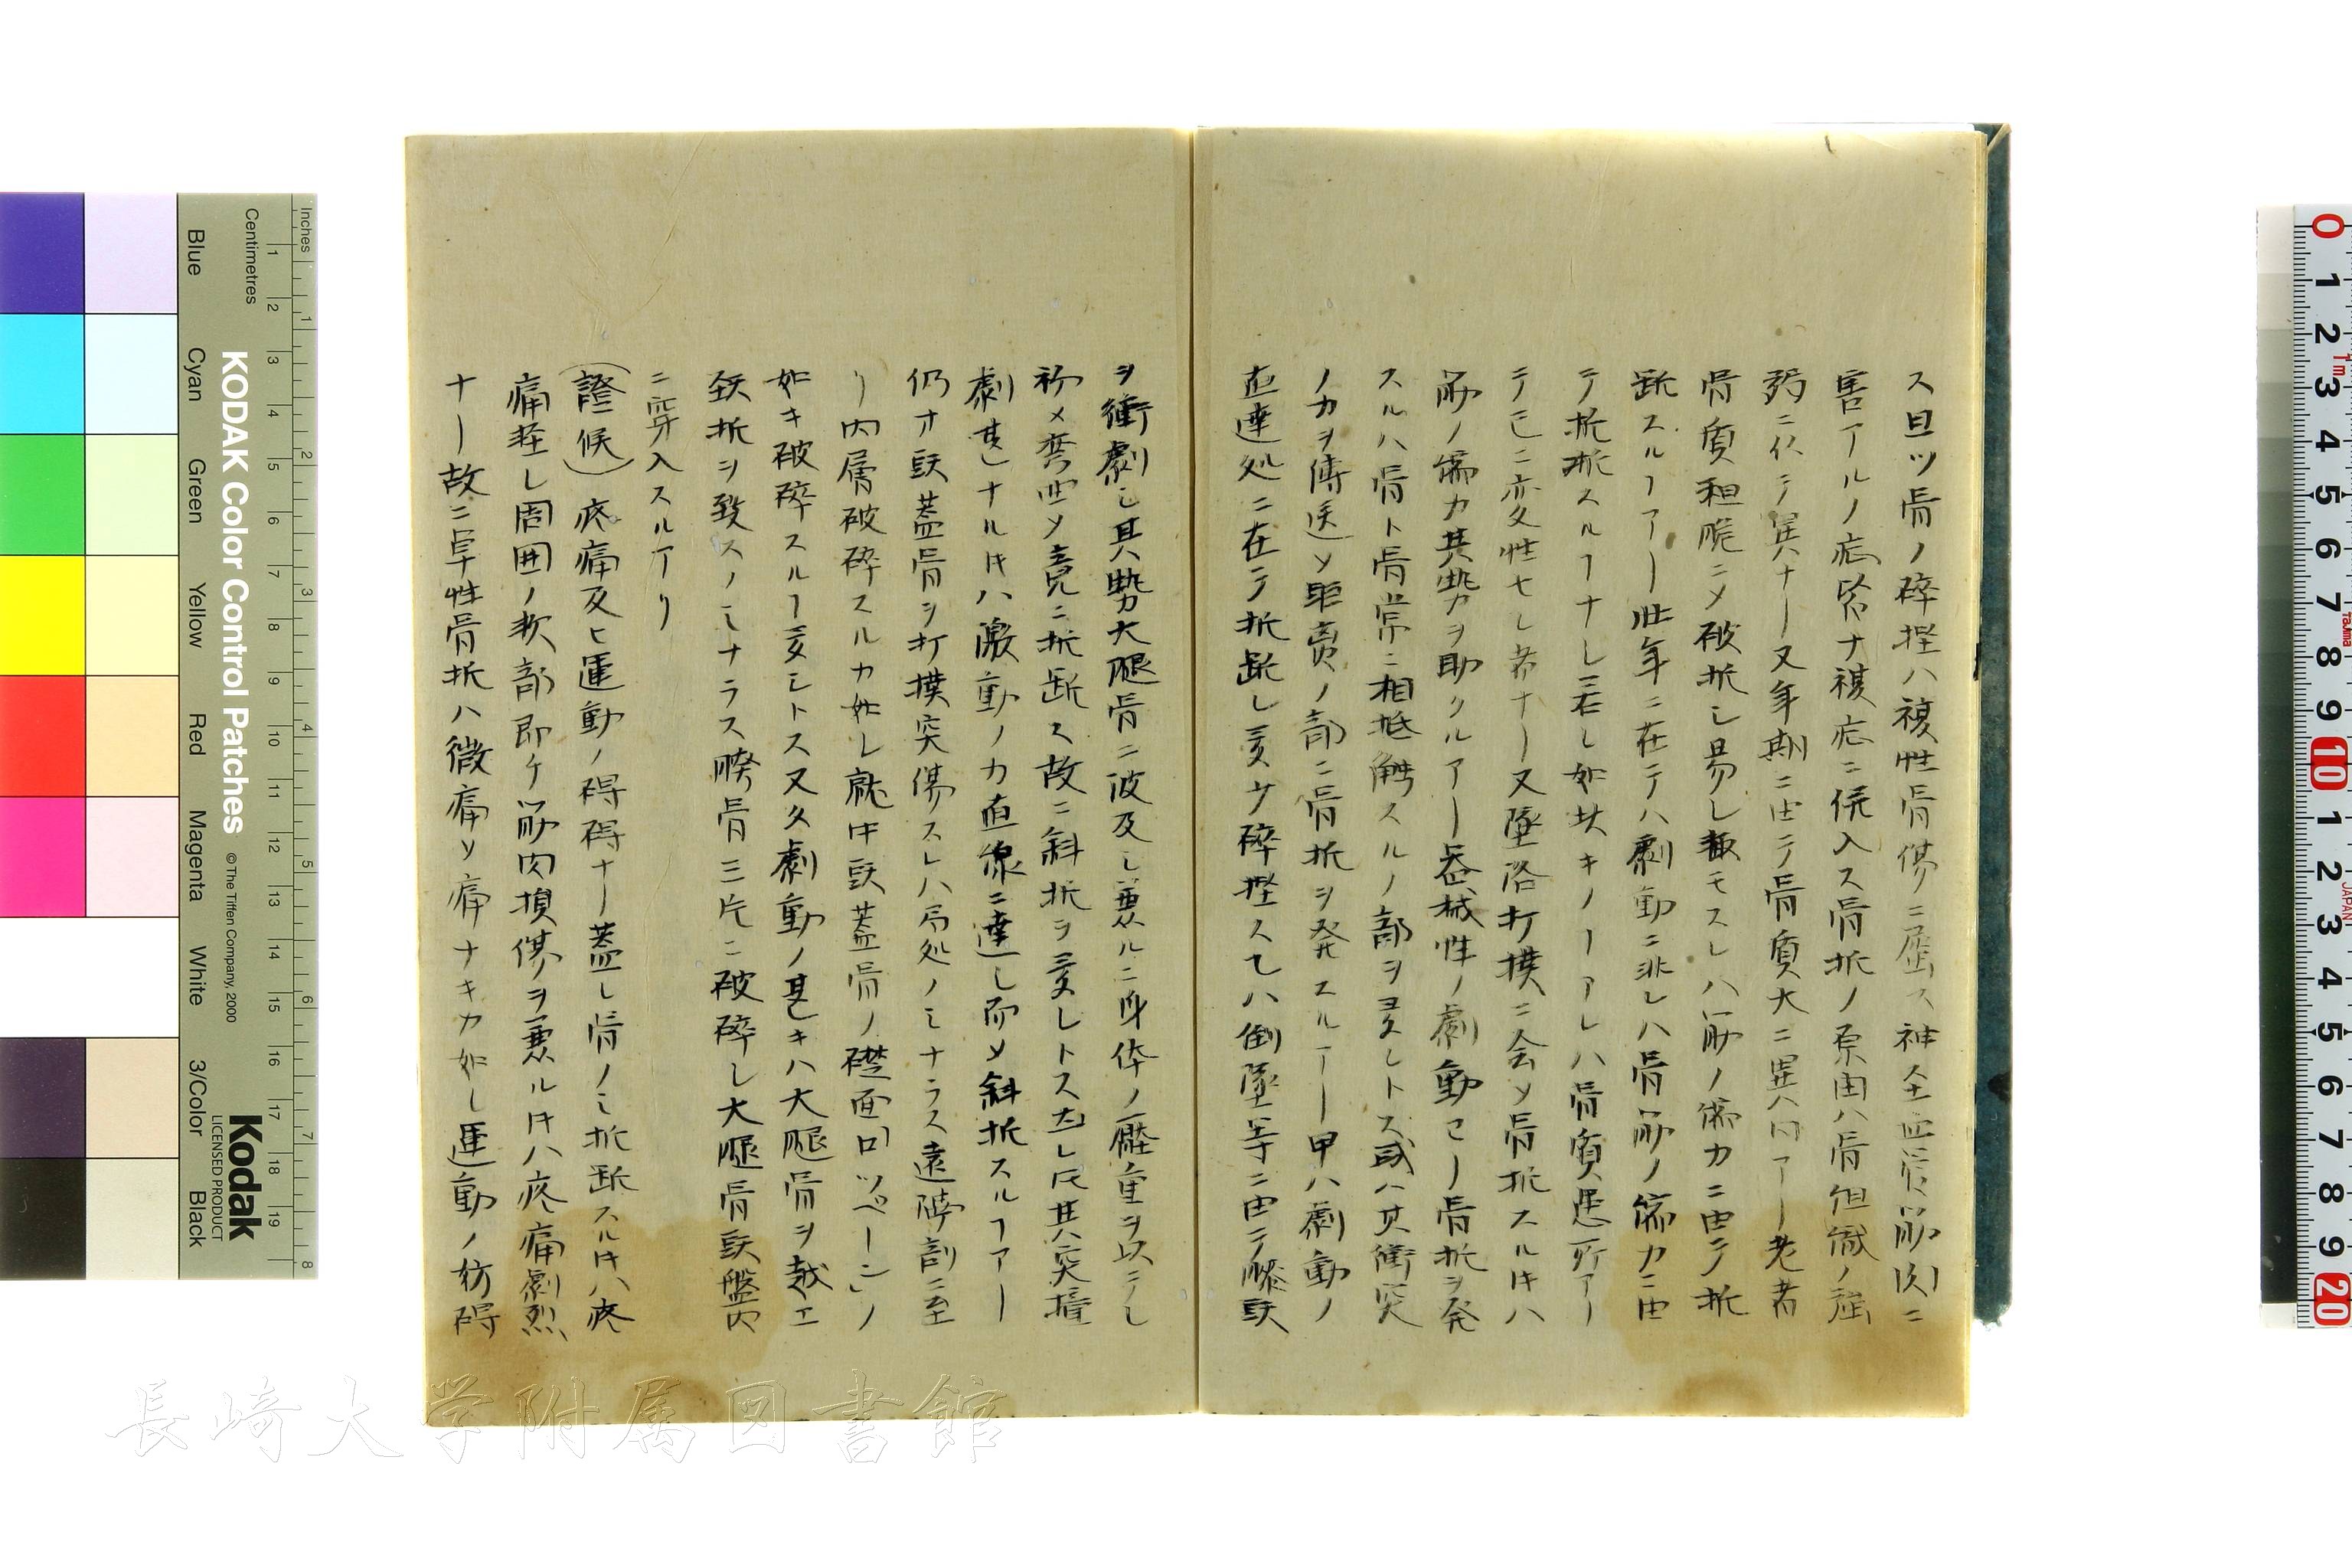 ス且ツ骨ノ碎挫ハ複性骨傷ニ屬ス神全血管筋肉ニ
害アルノ症皆ナ複症ニ併入ス骨折ノ原由ハ骨組織ノ強
弱ニ仍テ異ナリ又年期ニ由テ骨質大ニ異ヿアリ老者
骨質粗脆ニメ破折シ易シ輙モスレハ筋ノ縮力ニ由テ折
断スルヿアリ壮年ニ在テハ劇動ニ非レハ骨筋ノ縮力ニ由
テ折断スルヿナシ若シ如斯キノヿアレハ骨質患所アリ
テ已ニ変性セシ者ナリ又墜落打撲ニ会メ骨折スルキハ
筋ノ縮力其勢力ヲ助クルアリ器械性ノ劇動セリ骨折ヲ発
スルハ骨ト骨常ニ相抵触スルノ部ヲ多シトス或ハ其衝突
ノ力ヲ傳送メ距裔ノ部ニ骨折ヲ発スルアリ甲ハ劇動ノ
直達処ニ在テ折断シ或ハ碎挫ス乙ハ倒墜等ニ由テ膝頭
ヲ衝劇シ其勢大腿骨ニ波及シ兼ルニ身体ノ壓重ヲ以テシ
初メ弯曲メ竟ニ折断ス故ニ斜折ヲ多シトス然レ𪜈其突撞
劇甚ナルキハ激動ノ力直線ニ達シ而メ斜折スルヿアリ
仍オ頭蓋骨ヲ打撲突傷スレハ局処ノミナラス遠隔部ニ至
リ内層破碎スルカ如シ就中頭蓋骨ノ礎面ロツペーン」ノ
如キ破碎スルヿ多シトス又久劇動ノ甚キハ大腿骨ヲ越エ
頸折ヲ致スノミナラス胯骨三片ニ破碎シ大腿骨頭盤内
ニ穿入スルアリ
（證候）疼痛及ヒ運動ノ碍得ナリ蓋シ骨ノミ折断スルキハ疼
痛軽シ周囲ノ軟部即ケ筋肉損傷ヲ兼ルキハ疼痛劇烈
ナリ故ニ単性骨折ハ微痛メ痛ナキカ如シ運動ノ妨碍
長崎大学附属図書館
KODAK Color Control Patches
© The Tiffen Company, 2000
Kodak
LICENSED PRODUCT
Inches
Centimetres
Blue Cyan Green Yellow Red Magenta White 3/Color Black
1 2 3 4 5 6 7 8 9 10 11 12 13 14 15 16 17 18 19
1 2 3 4 5 6 7 8
0 1 2 3 4 5 6 7 8 9 10 1 2 3 4 5 6 7 8 9 20
1m
Tajima
JAPAN